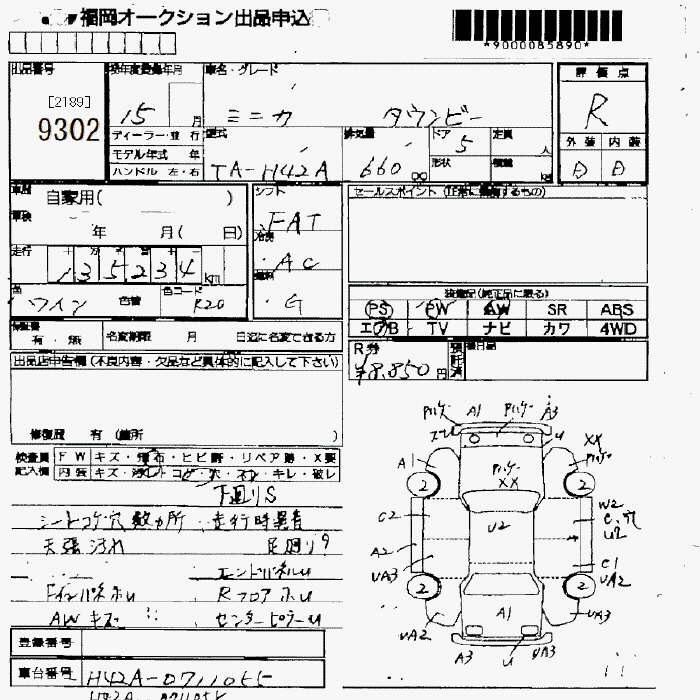 福岡オークション出品申込
*9000085890*
出品番号
車名・グレード
評価点
[2189]
9302
15 月
ミニカ タウンビー
R
ディーラー・並行
型式
排気量
ドア 5
定員 人
外装 内装
モデル年式 年
ハンドル 左・右
TA-H42A
660 cc
形状
積載 kg
D D
車歴
自家用( )
シフト
FAT
セールスポイント (正常に機能するもの)
車検
年 月( 日)
冷房
AC
走行
135234 km
燃料
G
色
ワイン
色替
色コード
R20
装備品(純正品に限る)
PS PW AW SR ABS
エアB TV ナビ カワ 4WD
保証書
有・無
名変期限 月 日迄に名変できる方
R券
¥8,850円
預託済
出品店申告欄(不良内容・欠品など具体的に記入して下さい)
修復歴 有 (箇所 )
検査員
記入欄
FW キズ・飛石・ヒビ割・リペア跡・X要
内装 キズ・汚れ・コゲ・穴・スレ・キレ・破レ
下廻りS
シートコゲ穴数カ所 走行時異音
天張汚れ 足廻り?
エンドパネルu
Fインパネホu Rフロアホu
AWキズ センターピラーu
登録番号
車台番号
H42A-0711055
A1
A3
XX
A1
XX
2
2
C2
U2
W2
C、穴
U2
A2
UA3
C1
UA2
2
2
UA2
A1
UA3
A3
U
UA3